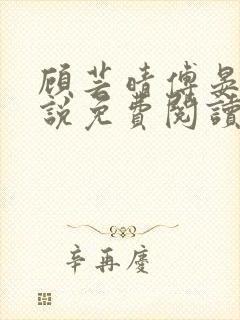 顾芸晴傅晏
說免費閱讀
辛再慶